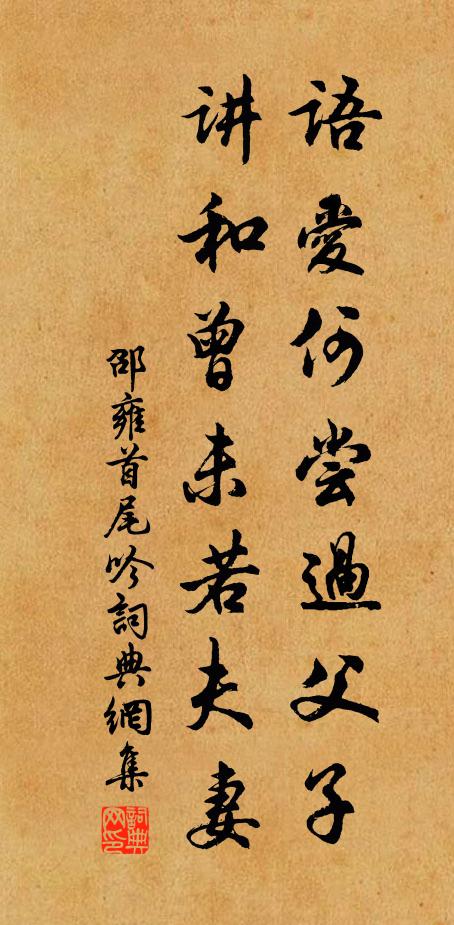 語愛何尝過父子
讲和曾未若夫妻
邵雍首尾吟詞典網集
詞典网印